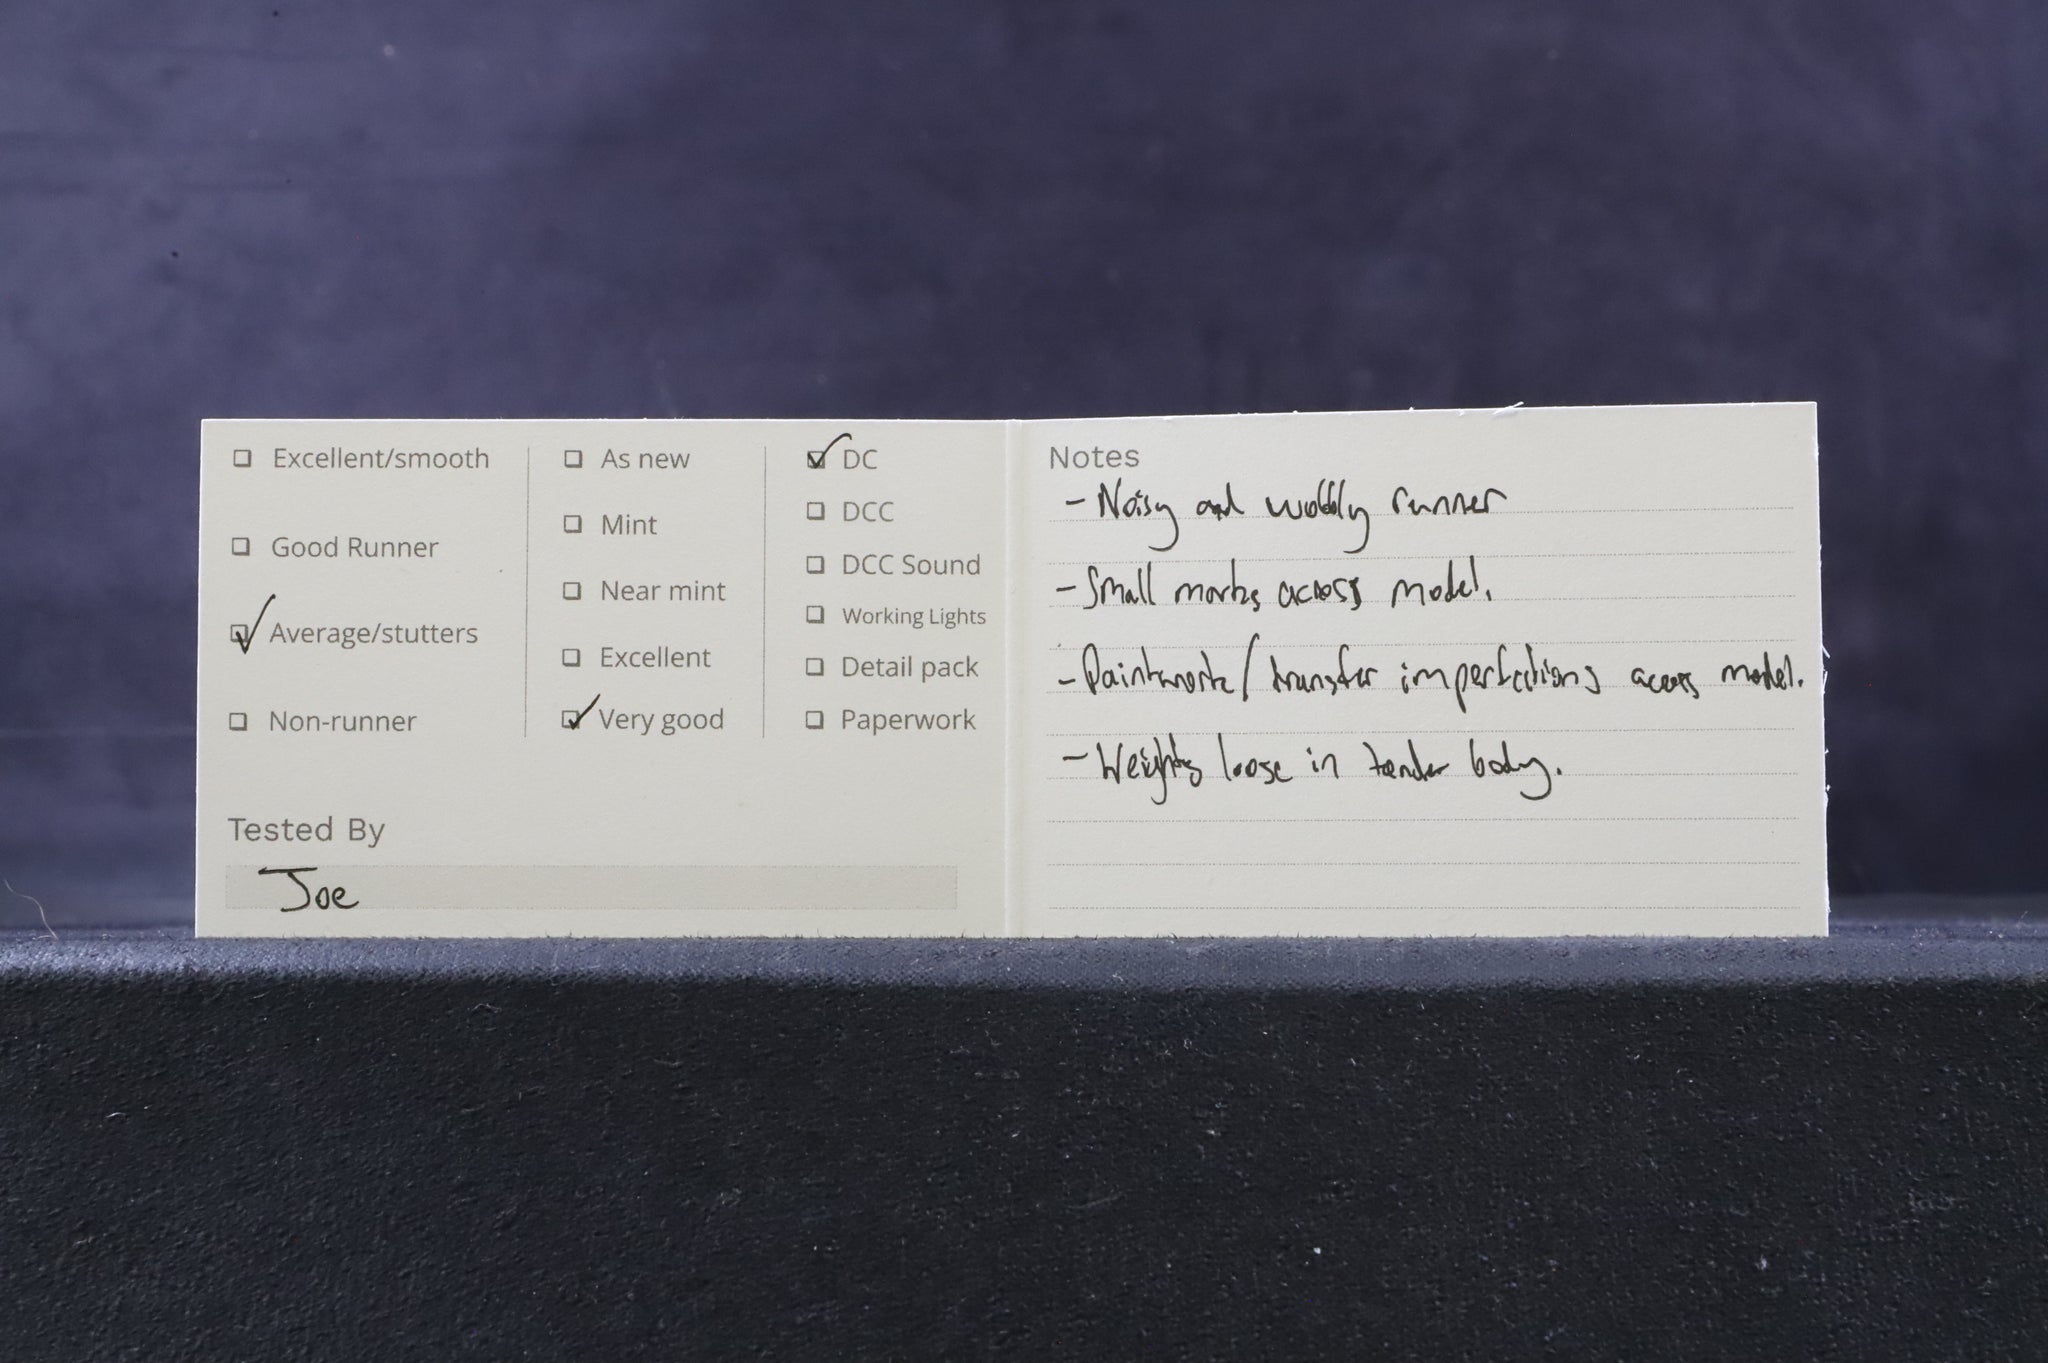 Excellent/smooth
Good Runner
Average/stutters
Non-runner
As new
Mint
Near mint
Excellent
Very good
DC
DCC
DCC Sound
Working Lights
Detail pack
Paperwork
Tested By
Joe
Notes
- Noisy and wobbly runner
- Small marks across model.
- Paintwork/transfer imperfections across model.
- Weights loose in tender body.